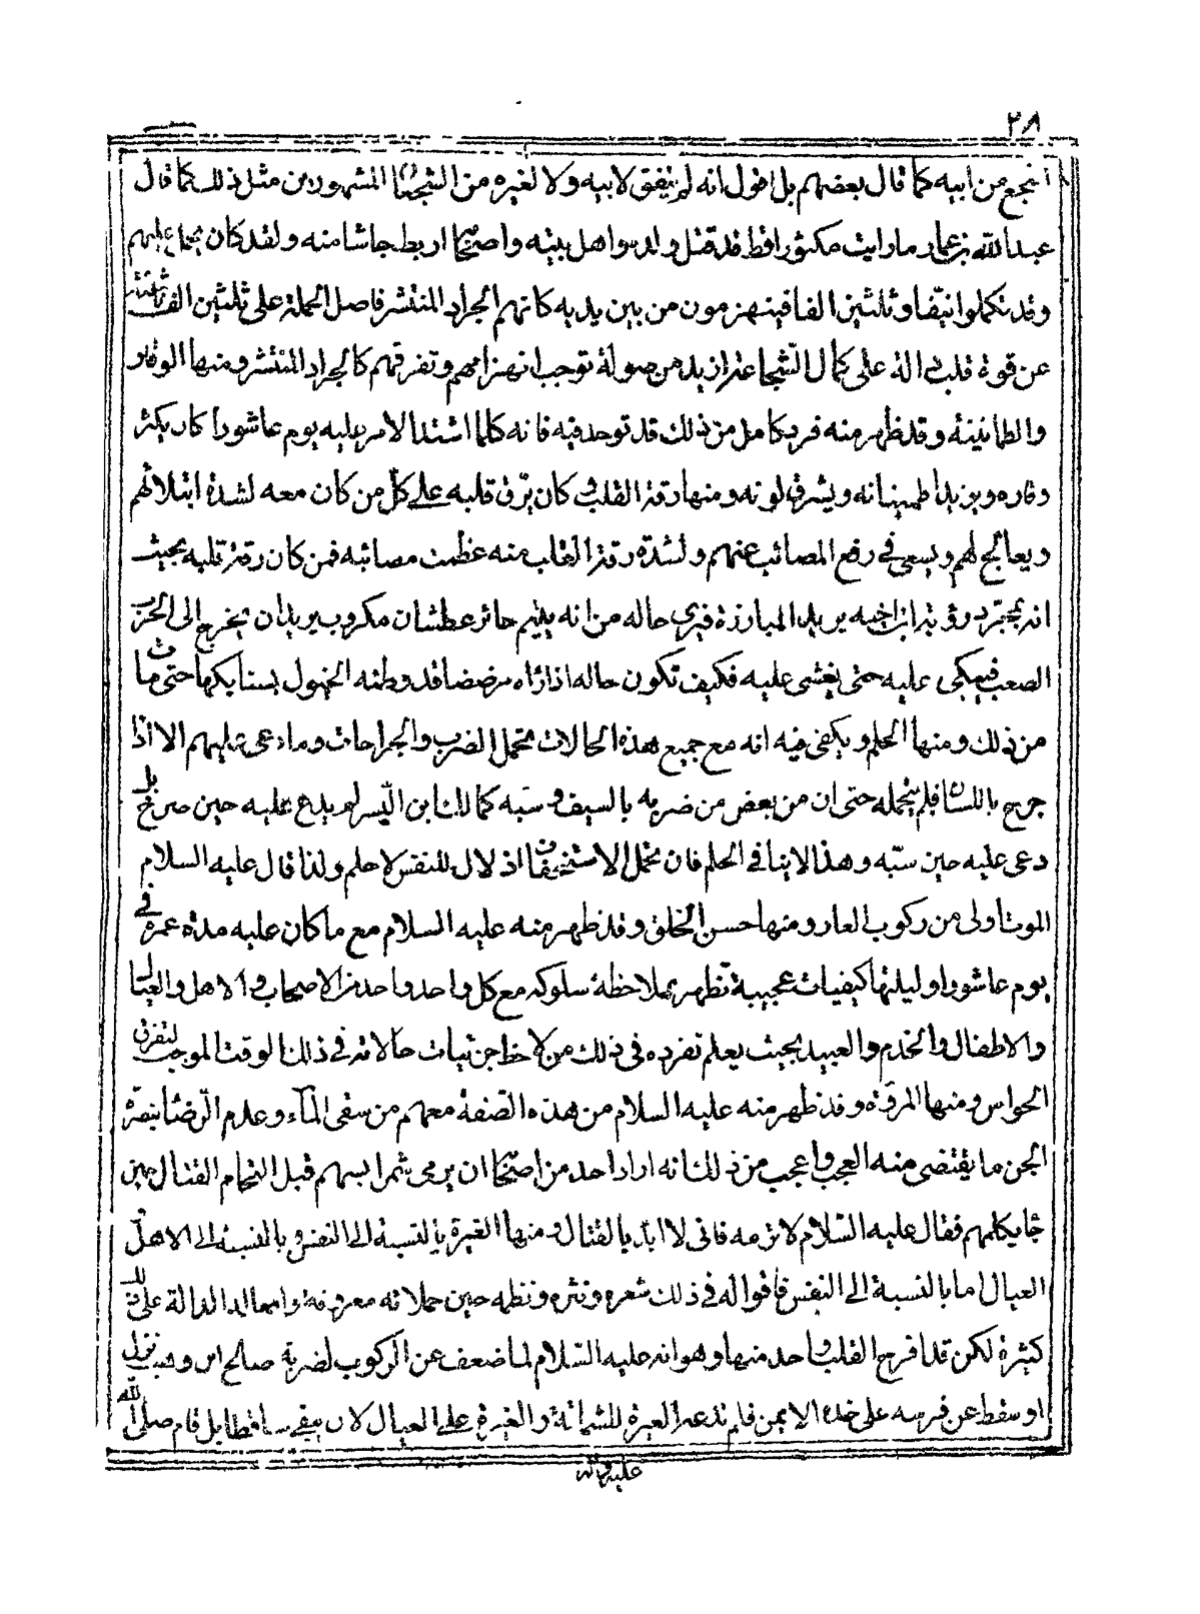 ٢٨
اشجع من ابيه كما قال بعضهم بل اقول انه لم يتفق لابيه ولا لغيره من الشجعان المشهورين مثل ذلك كما قال
عبد الله بن عمار ما رايت مكثورا قط قد قتل ولده واهل بيته واصحابه اربط جاشا منه ولقد كان يحمل عليهم
وقد تكملوا نيفا وثلثين الفا فينهزمون من بين يديه كانهم الجراد المنتشر فاصل الحملة على ثلثين الف
عن قوة قلب دالة على كمال الشجاعة ازيد من صولة توجب انهزامهم وتفرقهم كالجراد المنتشر ومنها الوقار
والطمانينة وقد ظهر منه فرد كامل من ذلك قد توحد فيه فانه كلما اشتد الامر عليه يوم عاشورا كان يكثر
وقاره ويزيد اطمينانه ويشرق لونه ومنها رقة القلب و كان يرق قلبه على كل من كان معه لشدة ابتلائهم
ويعالج لهم ويسعى في رفع المصائب عنهم ولشدة رقة القلب منه عظمت مصائبه فمن كان رقة قلبه بحيث
انه بمجرد رؤية ابن اخيه يريد المبارزة فيرى حاله من انه يتيم حائر عطشان مكروب يريد ان يخرج الى الحرب
الصعب فيبكى عليه حتى يغشى عليه فكيف تكون حاله اذا رآه مرضضا قد وطئه الخيول بسنابكها حتى مات
من ذلك ومنها الحلم ويكفى فيه انه مع جميع هذه الحالات متحمل الضرب والجراحات وما دعى عليهم الا اذا
جرح باللسان فلم يتحمله حتى ان من بعض من ضربه بالسيف و سبه كمالك ابن اليسر لم يدع عليه حين ضربه بل
دعى عليه حين سبه وهذا لا ينافي الحلم فان تحمل الاستخفاف اذلال للنفس لا حلم ولذا قال عليه السلام
الموت اولى من ركوب العار ومنها حسن الخلق وقد ظهر منه عليه السلام مع ما كان عليه مدة عمره في
يوم عاشورا وليلتها كيفيات عجيبة تظهر بملاحظة سلوكه مع كل واحد واحد من الاصحاب و الاهل والعيال
والاطفال والخدم والعبيد بحيث يعلم تفرده في ذلك من لاحظ جزئيات حالاته في ذلك الوقت الموجب لتفرق
الحواس ومنها المروة وقد ظهر منه عليه السلام من هذه الصفة معهم من سقى الماء وعدم الرضا بنصرة
الجن ما يقتضى منه العجب واعجب من ذلك انه اراد احد من اصحابه ان يرمى شمرا بسهم قبل التحام القتال حين
جا يكلمهم فقال عليه السلام لا ترمه فانى لا ابدء بالقتال ومنها الغيرة بالنسبة الى النفس و بالنسبة الى الاهل و
العيال اما بالنسبة الى النفس فاقواله في ذلك شعره ونثره ونظمه حين حملاته معروفة وافعاله الدالة على ذلك
كثيرة لكن قد اقرح القلب واحد منها وهو انه عليه السلام لما ضعف عن الركوب لضربة صالح ابن وهب نزل
او سقط عن فرسه على خده الايمن فلم تدعه الغيرة للشماتة و الغيرة على العيال لان يبقى ساقطا بل قام صلى الله
عليه وآله